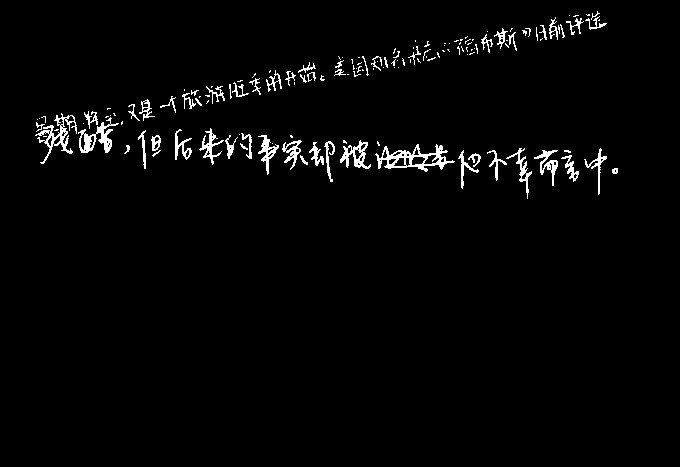 暑期将至,又是一个旅游旺季的开始。美国知名杂志“福布斯”日前评选
残酷,但后来的事实却被他不幸而言中。